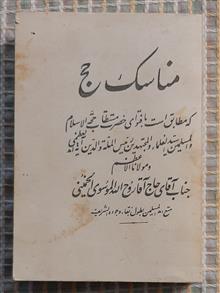 مناسک حج
که مطابق است با فتوای حضرت مستطاب حجة الاسلام
والمسلمین سید العلماء والمجتهدین رئیس الملة والدین آیة الله العظمی
ومولانا الاعظم
جناب آقای حاج آقا روح الله الموسوی الخمینی
متع الله المسلمین بطول بقاء وجوده الشریف